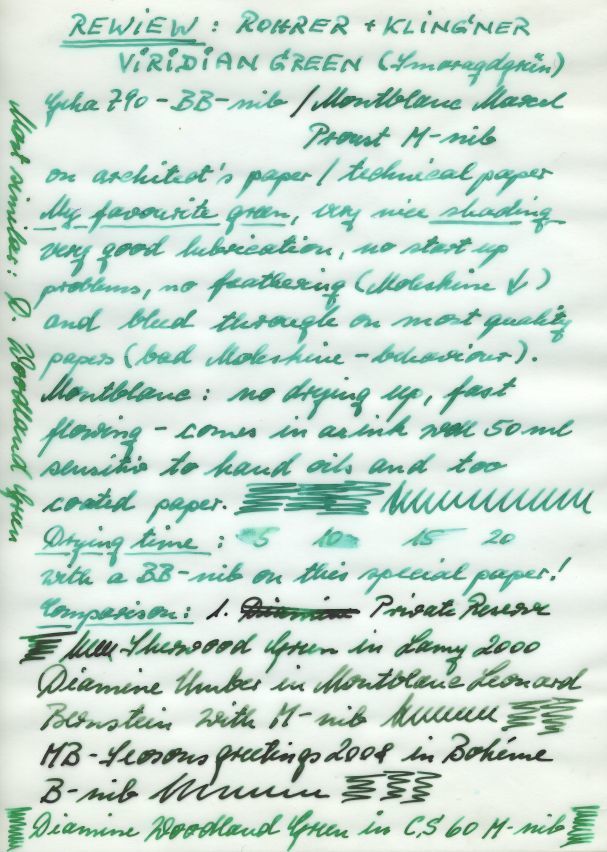 REWIEW: ROHRER + KLINGNER
VIRIDIAN GREEN (Smaragdgrün)
Gcha 790 - BB-nib / Montblanc Marcel
Proust M-nib
on architect's paper / technical paper
My favourite green, very nice shading
very good lubrication, no start up
problems, no feathering (Moleskine ↓)
and bleed through on most quality
papers (bad Moleskine - behaviour).
Montblanc: no drying up, fast
flowing - comes in an ink well 50 ml
sensitiv to hand oils and too
coated paper.
Drying time: 5 10 15 20
with a BB-nib on this special paper!
Comparison: 1. Diamine Private Reserve
Sherwood Green in Lamy 2000
Diamine Umber in Montblanc Leonard
Bernstein with M-nib
MB-Seasonsgreetings 2008 in Bohème
B-nib
Diamine Woodland Green in C.S 60 M-nib
Most similar: D. Woodland Green